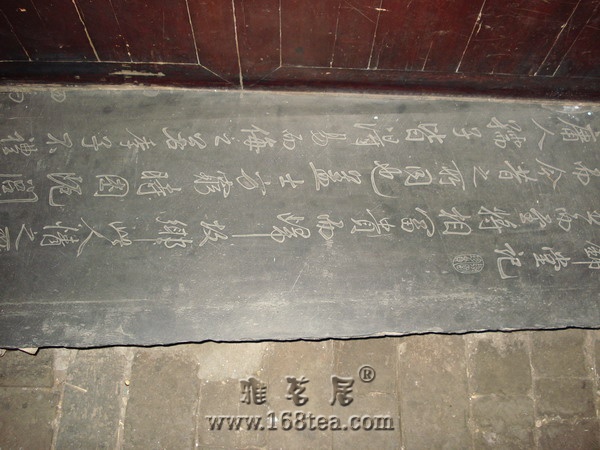 錦堂記
而至將相富貴而歸故鄉此人情之
而今昔之所同也蓋士方窮時困阨閭
庸人孺子皆得易而侮之若季子不禮
雅茗居®
www.168tea.com